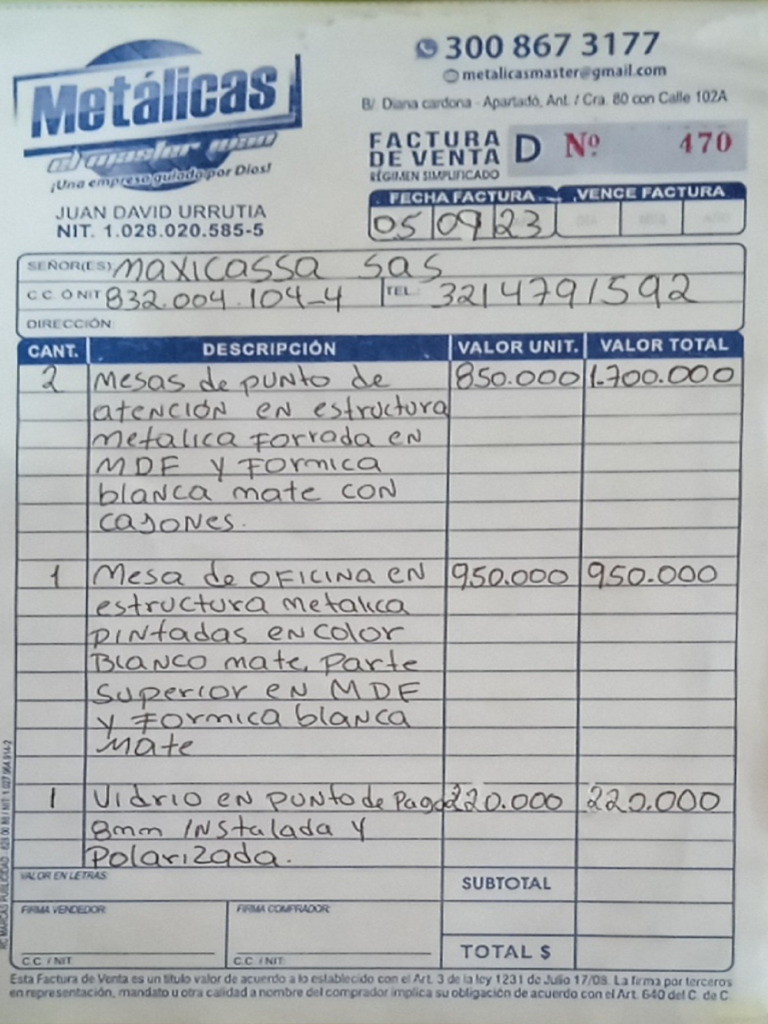 300 867 3177
metalicasmaster@gmail.com
B/ Diana cardona - Apartadó, Ant. / Cra. 80 con Calle 102A
Metálicas
el master juan
¡Una empresa guiada por Dios!
JUAN DAVID URRUTIA
NIT. 1.028.020.585-5
FACTURA
DE VENTA D Nº 470
RÉGIMEN SIMPLIFICADO
FECHA FACTURA VENCE FACTURA
05 09 23
SEÑOR(ES) Maxicassa sas
C.C. Ó NIT 832.004.104-4 TEL.: 3214791592
DIRECCIÓN:
CANT. DESCRIPCIÓN VALOR UNIT. VALOR TOTAL
2 Mesas de punto de 850.000 1.700.000
atención en estructura
metalica forrada en
MDF y Formica
blanca mate con
cajones.
1 Mesa de oficina en 950.000 950.000
estructura metalica
pintadas en color
Blanco mate, Parte
Superior en MDF
y Formica blanca
Mate
1 Vidrio en punto de Pago 220.000 220.000
8mm instalada y
Polarizada.
VALOR EN LETRAS:
SUBTOTAL
FIRMA VENDEDOR: FIRMA COMPRADOR:
C.C. / NIT: C.C. / NIT: TOTAL $
Esta Factura de Venta es un título valor de acuerdo a lo establecido con el Art. 3 de la ley 1231 de Julio 17/08. La firma por terceros
en representación, mandato u otra calidad a nombre del comprador implica su obligación de acuerdo con el Art. 640 del C. de C.